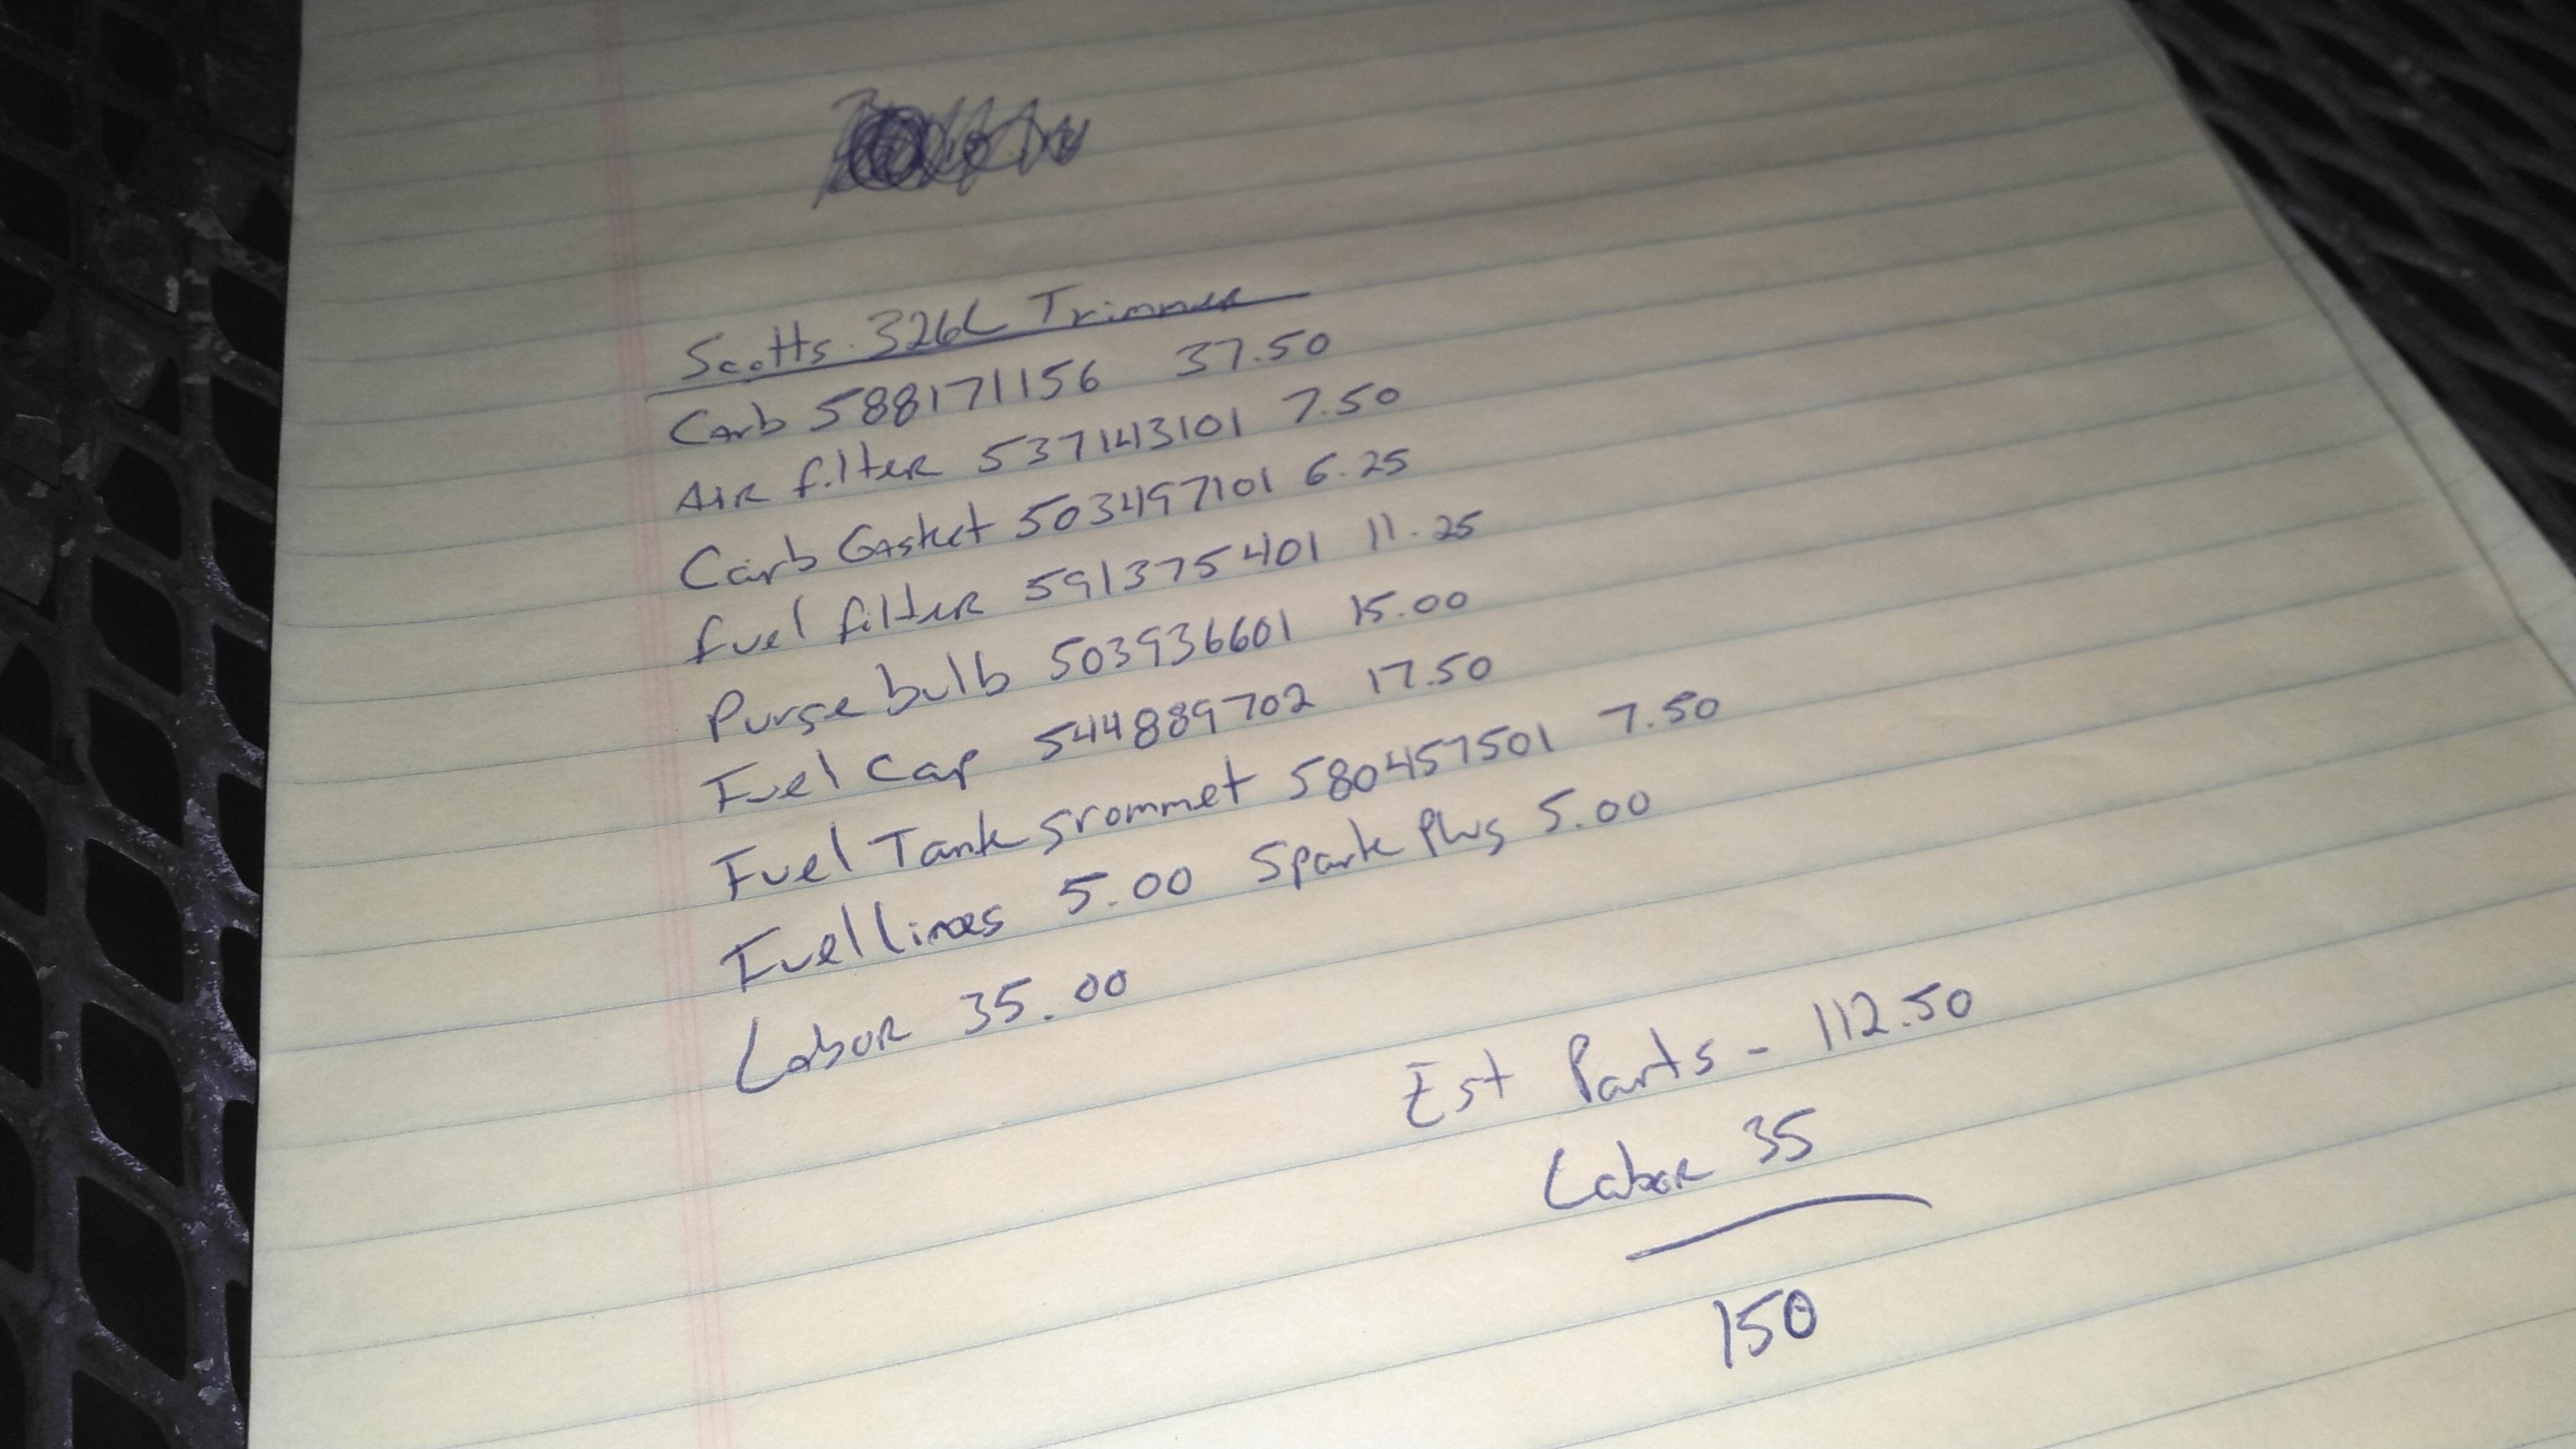 Scotts 326L Trimmer
Carb 588171156 37.50
AIR filter 537143101 7.50
Carb Gasket 503497101 6.25
fuel filter 591375401 11.25
Purge bulb 503936601 15.00
Fuel Cap 544889702 17.50
Fuel Tank grommet 580457501 7.50
Fuel lines 5.00 Spark Plug 5.00
Labor 35.00
Est Parts - 112.50
Labor 35
150